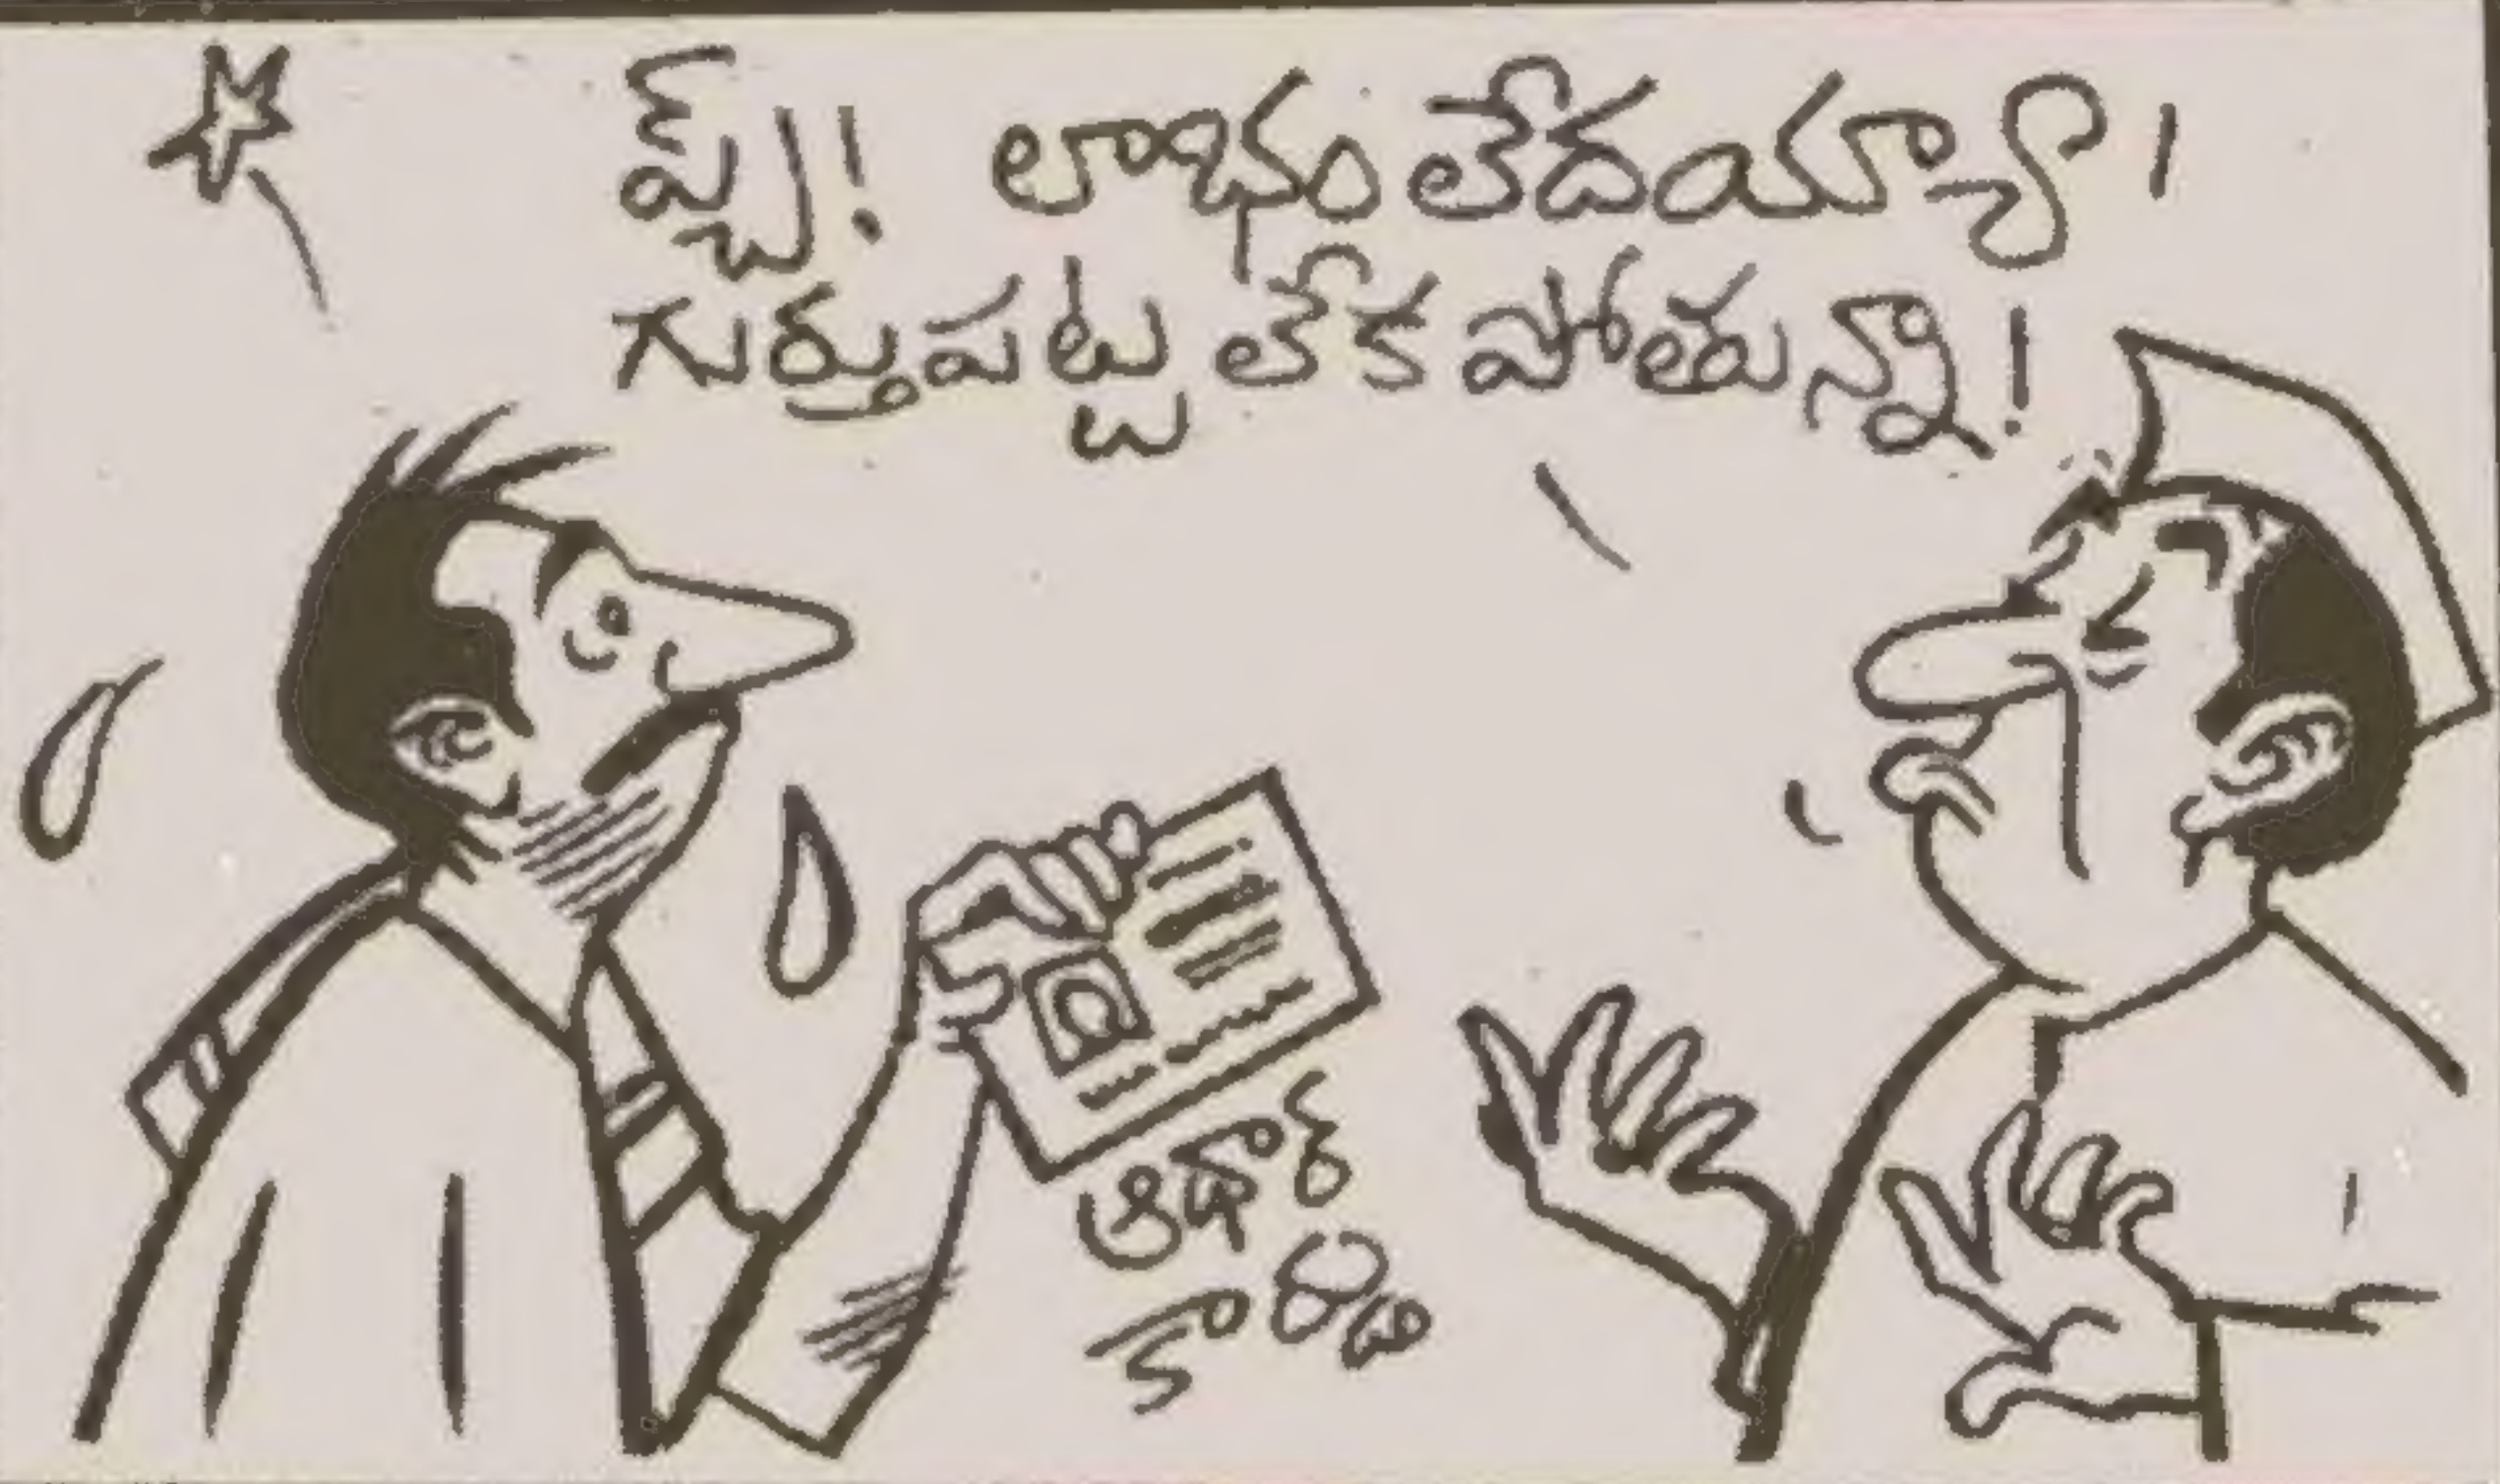 ప్చ్! లాభం లేదయ్యా!
గుర్తుపట్ట లేక పోతున్నా!
ఆధార్
కార్డు